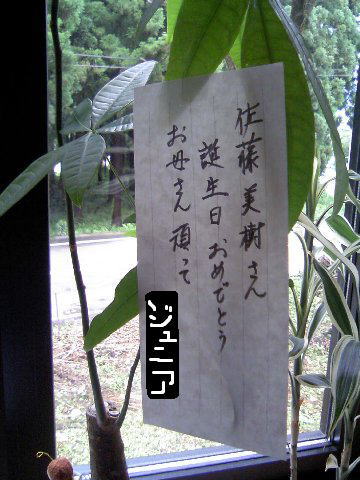 佐藤美樹さん
誕生日おめでとう
お母さん頑って
ジュニア